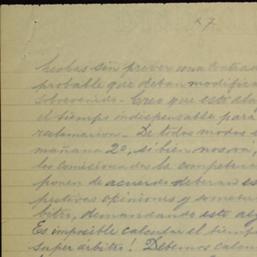 x 7
hechas sin prever una contrad
probable que deban modifica
sobreseerido. Creo que este ata
el tiempo indispensable para
reclamacion. De todos modos
mañana 2º, si bien nos
los comicionados la competen
ponen de acuerdo deberan es
pectivas opiniones y someter
bitro, demandando este al
Es imposible calcular el tiemp
super árbitro! Debemos calcu